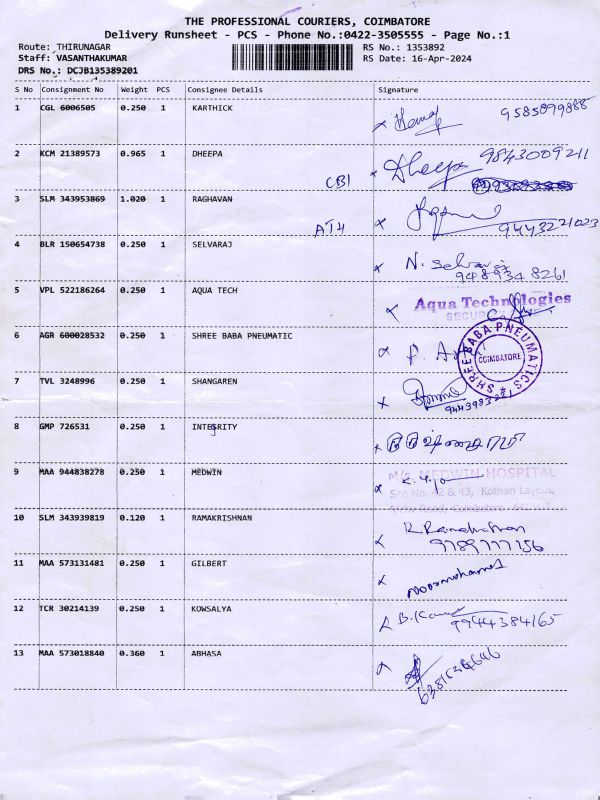 THE PROFESSIONAL COURIERS, COIMBATORE
Delivery Runsheet - PCS - Phone No.:0422-3505555 - Page No.:1
Route: THIRUNAGAR RS No.: 1353892
Staff: VASANTHAKUMAR RS Date: 16-Apr-2024
DRS No.: DCJB135389201
S No Consignment No Weight PCS Consignee Details Signature
1 CGL 6006505 0.250 1 KARTHICK Hema 9585899888
2 KCM 21389573 0.965 1 DHEEPA CB1 Dheepa 9843009211
3 SLM 343953869 1.020 1 RAGHAVAN AT4 9443221023
4 BLR 150654738 0.250 1 SELVARAJ N. Selvaraj
9489348261
5 VPL 522186264 0.250 1 AQUA TECH Aqua Technologies
SECURITY
6 AGR 600028532 0.250 1 SHREE BABA PNEUMATIC SHREE BABA PNEUMATICS COIMBATORE
7 TVL 3248996 0.250 1 SHANGAREN
8 GMP 726531 0.250 1 INTEGRITY
9 MAA 944838278 0.250 1 MEDWIN M/s. MEDWIN HOSPITAL
Site No. 42 & 43, Kothari Layout,
10 SLM 343939819 0.120 1 RAMAKRISHNAN
9789777156
11 MAA 573131481 0.250 1 GILBERT Noormohamed
12 TCR 30214139 0.250 1 KOWSALYA 9944384165
13 MAA 573018840 0.360 1 ABHASA